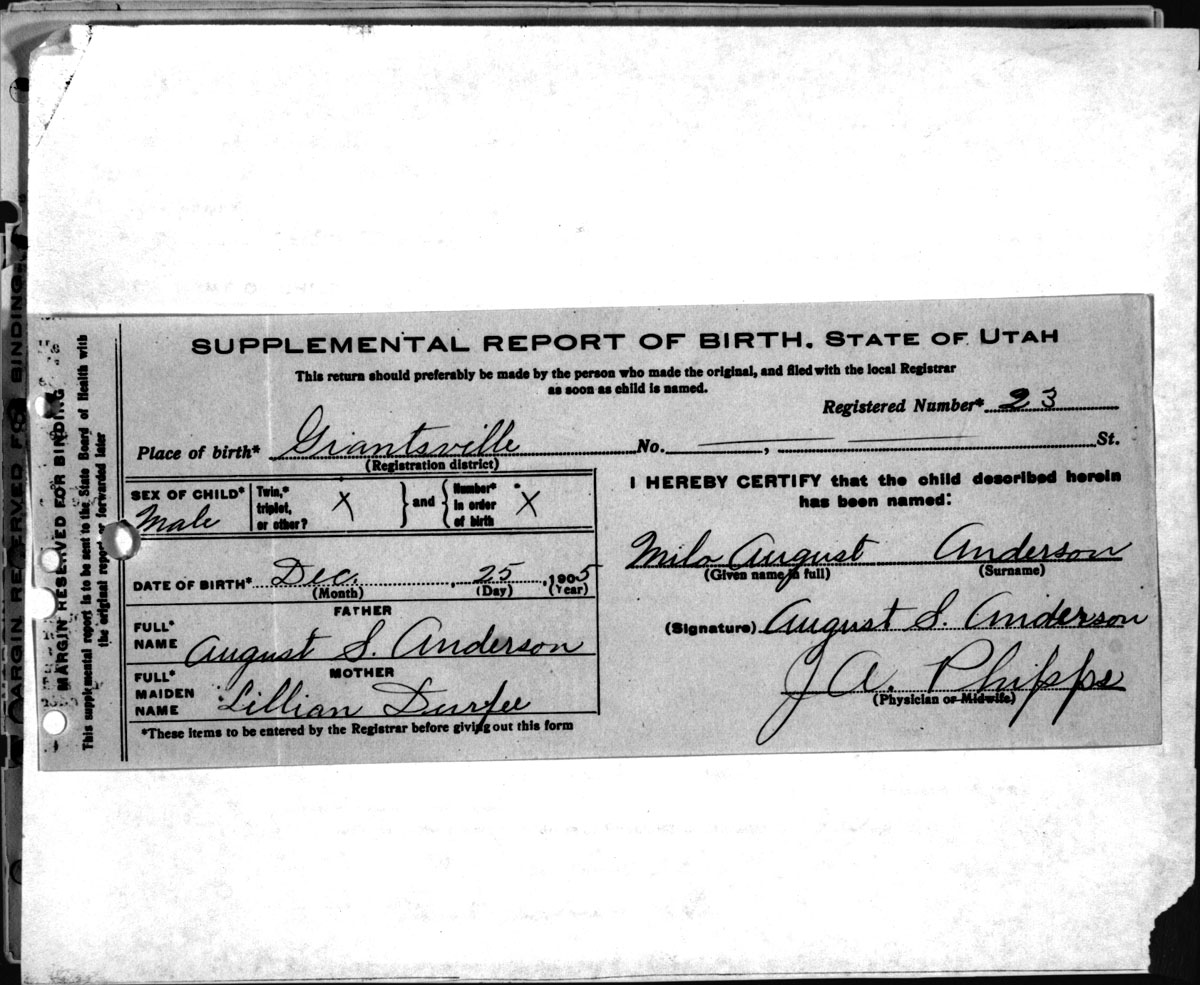 SUPPLEMENTAL REPORT OF BIRTH. STATE OF UTAH
This return should preferably be made by the person who made the original, and filed with the local Registrar
as soon as child is named.
Registered Number* 23
Place of birth* Grantsville No. , St.
(Registration district)
SEX OF CHILD* Male
Twin,*
triplet,
or other? X } and { Number*
in order
of birth X
DATE OF BIRTH* Dec. , 25 , 1905
(Month) (Day) (Year)
FATHER
FULL*
NAME August S. Anderson
MOTHER
FULL*
MAIDEN
NAME Lillian Durfee
*These items to be entered by the Registrar before giving out this form
I HEREBY CERTIFY that the child described herein
has been named:
Milo August Anderson
(Given name in full) (Surname)
(Signature) August S. Anderson
J A. Phipps
(Physician or Midwife)
MARGIN RESERVED FOR BINDING
This supplemental report is to be sent to the State Board of Health with
the original report or forwarded later
MARGIN RESERVED FOR BINDING